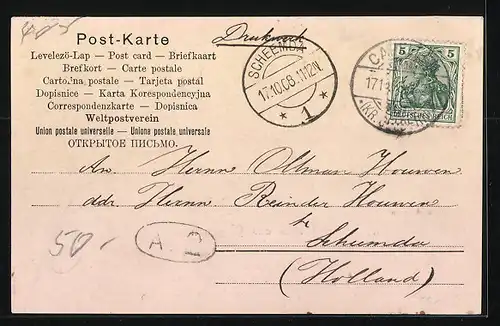 Post-Karte
Drucksache
Levelező-Lap — Post card — Briefkaart
Brefkort — Carte postale
Carto.'na postale — Tarjeta postál
Dopisnice — Karta Korespondencyjna
Correspondenzkarte — Dopisnica
Weltpostverein
Union postale universelle — Unione postale universale
ОТКРЫТОЕ ПИСЬМО.
SCHEEMDA
17.10.08.11-12N.
1
5 5
DEUTSCHES REICH
An Herrn Oltman Houwen
adr. Herrn Reinder Houwen
Schemda
(Holland)
50.-